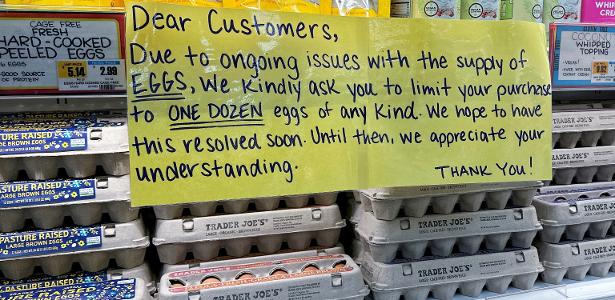 CAGE FREE
FRESH
HARD-COOKED
PEELED EGGS
6 EGGS
GOOD SOURCE
OF PROTEIN
5.14
2.99
Dear Customers,
Due to ongoing issues with the supply of
EGGS, We kindly ask you to limit your purchase
to ONE DOZEN eggs of any kind. We hope to have
this resolved soon. Until then, we appreciate your
understanding.
THANK YOU!
COCONUT
WHIPPED
TOPPING
PASTURE RAISED
LARGE BROWN EGGS
PASTURE RAISED
LARGE BROWN EGGS
PASTURE RAISED
LARGE BROWN EGGS
PASTURE RAISED
TRADER JOE'S
TRADER JOE'S
TRADER JOE'S
TRADER JOE'S
TRADER JOE'S
TRADER JOE'S
TRADER JOE'S